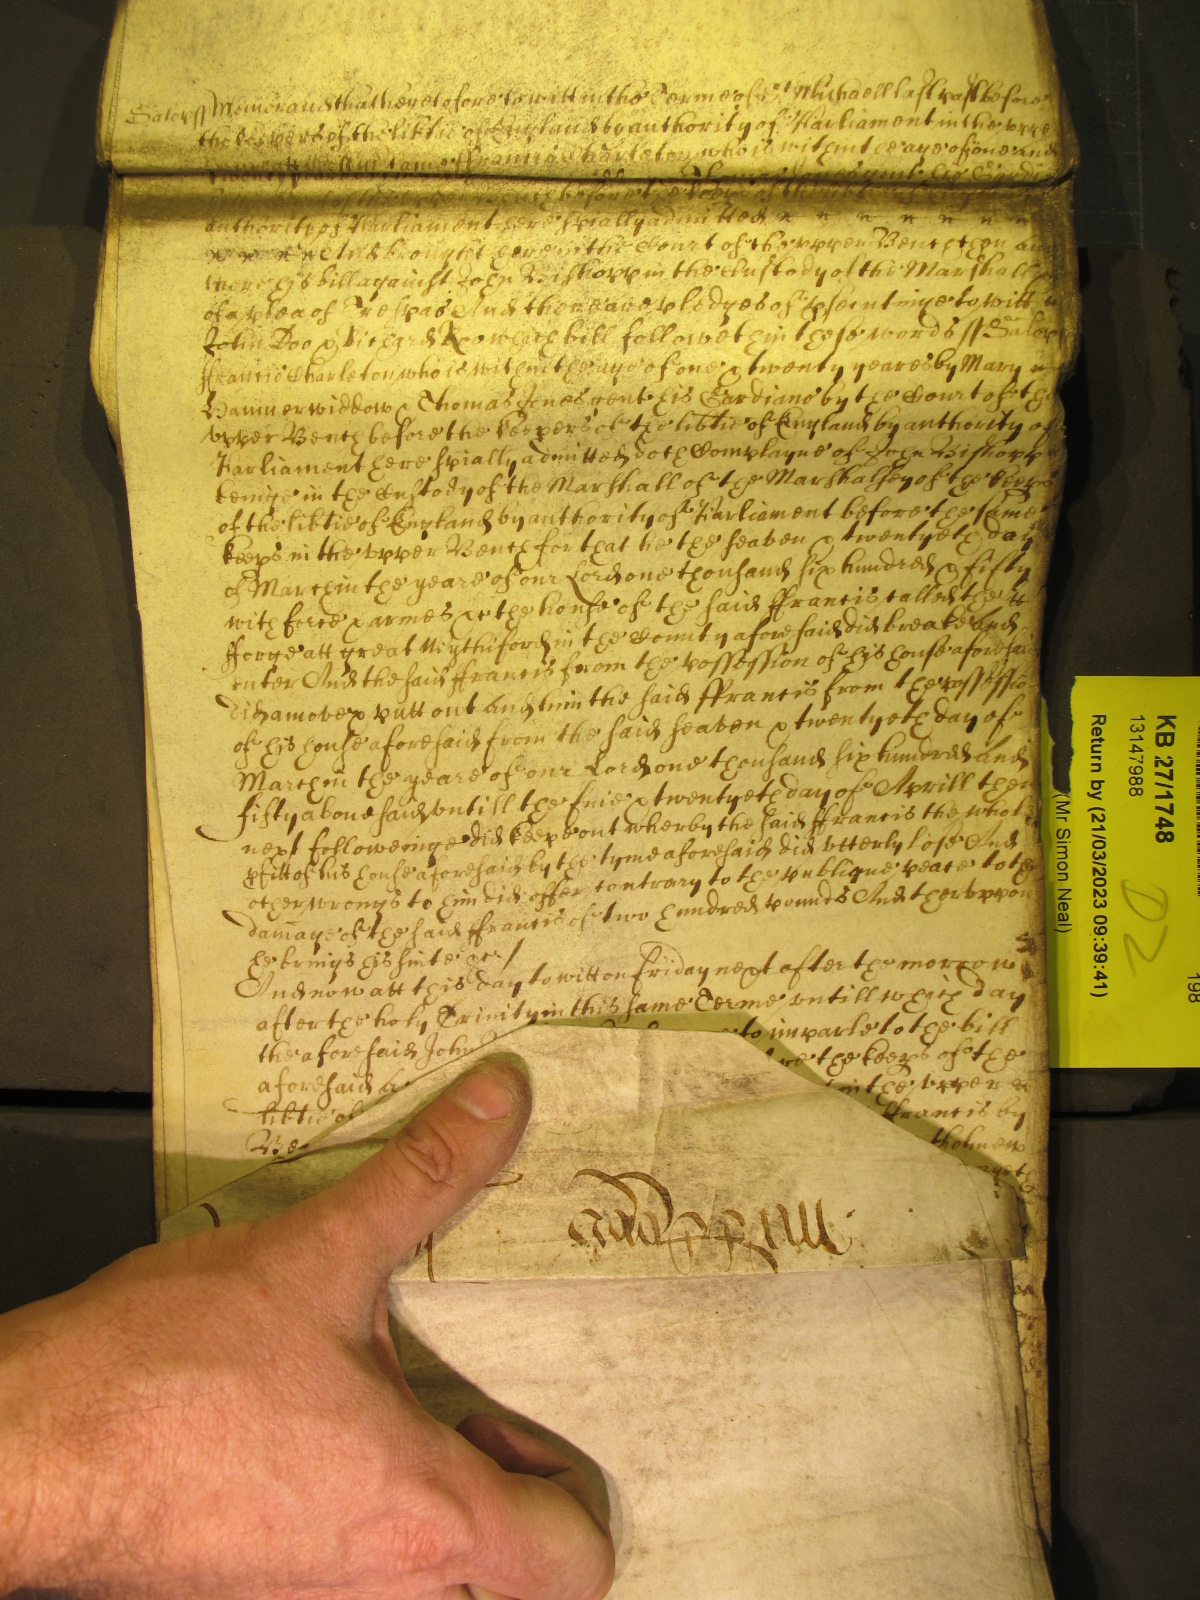 Salop ss Memorand that heretofore to witt in the Terme of St Michaell last past before
the keepers of the libtie of England by authority of Parliament in the upper
came ffrancis Charleton who is within the age of one and
authority of Parliament here spially admitted
And brought here in the Court of the upper Bench then and
there his bill against John Bishopp in the Custody of the Marshall
of a plea of Trespas And there are pledges of psecutinge to witt
John Doo & Richard Roo which bill followeth in these words ss Salop
ffrancis Charleton who is within the age of one & twenty yeares by Mary
Hanmer widdow & Thomas Jones gent his Gardians by the Court of the
upper Bench before the keepers of the libtie of England by authority of
Parliament here spially admitted doth Complayne of John Bishopp
beinge in the Custody of the Marshall of the Marshalsey of the keeps
of the libtie of England by authority of Parliament before the same
keeps in the upper Bench for that he the seaven & twentyeth day
of March in the yeare of our Lord one thousand six hundred & fifty
with force & armes &c the house of the said ffrancis called the
fforge att great Wythiford in the County aforesaid did breake and
enter And the said ffrancis from the possession of his house aforesaid
did amove & putt out And him the said ffrancis from the possessio
of his house aforesaid from the said seaven & twentyeth day of
March in the yeare of our Lord one thousand six hundred and
fifty abovesaid untill the five & twentyeth day of Aprill then
next followeinge did keepe out wherby the said ffrancis the whole
pfitt of his house aforesaid by the tyme aforesaid did utterly lose And
other wrongs to him did offer contrary to the publique peace to the
damage of the said ffrancis of two hundred pounds And therbppon
he brings his suite &c /
And now att this day to witt on Friday next after the morrow
after the holy Trinity in this same Terme untill which day
the aforesaid John to imparle to the bill
aforesaid the keeps of the
libtie of in the upper
ffrancis by
KB 27/1748
13147988
Return by (21/03/2023 09:39:41)
(Mr Simon Neal)
D2
198